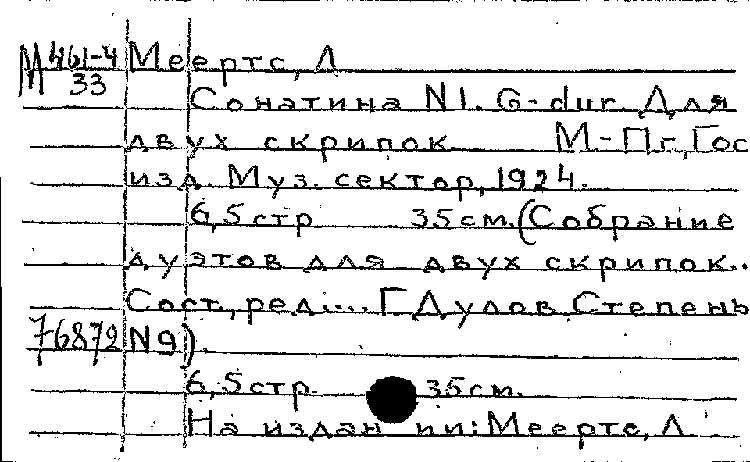 М 461-4 Меертс, Л
33
Сонатина N1. G-dur Для
двух скрипок М.-Пг, Гос
изд Муз. сектор, 1924.
6,5 стр 35 см. (Собрание
дуэтов для двух скрипок..
Сост., ред.... Г Дулов Степень
76872 N9).
6,5 стр. 35 см.
На издан ии: Меертс, Л